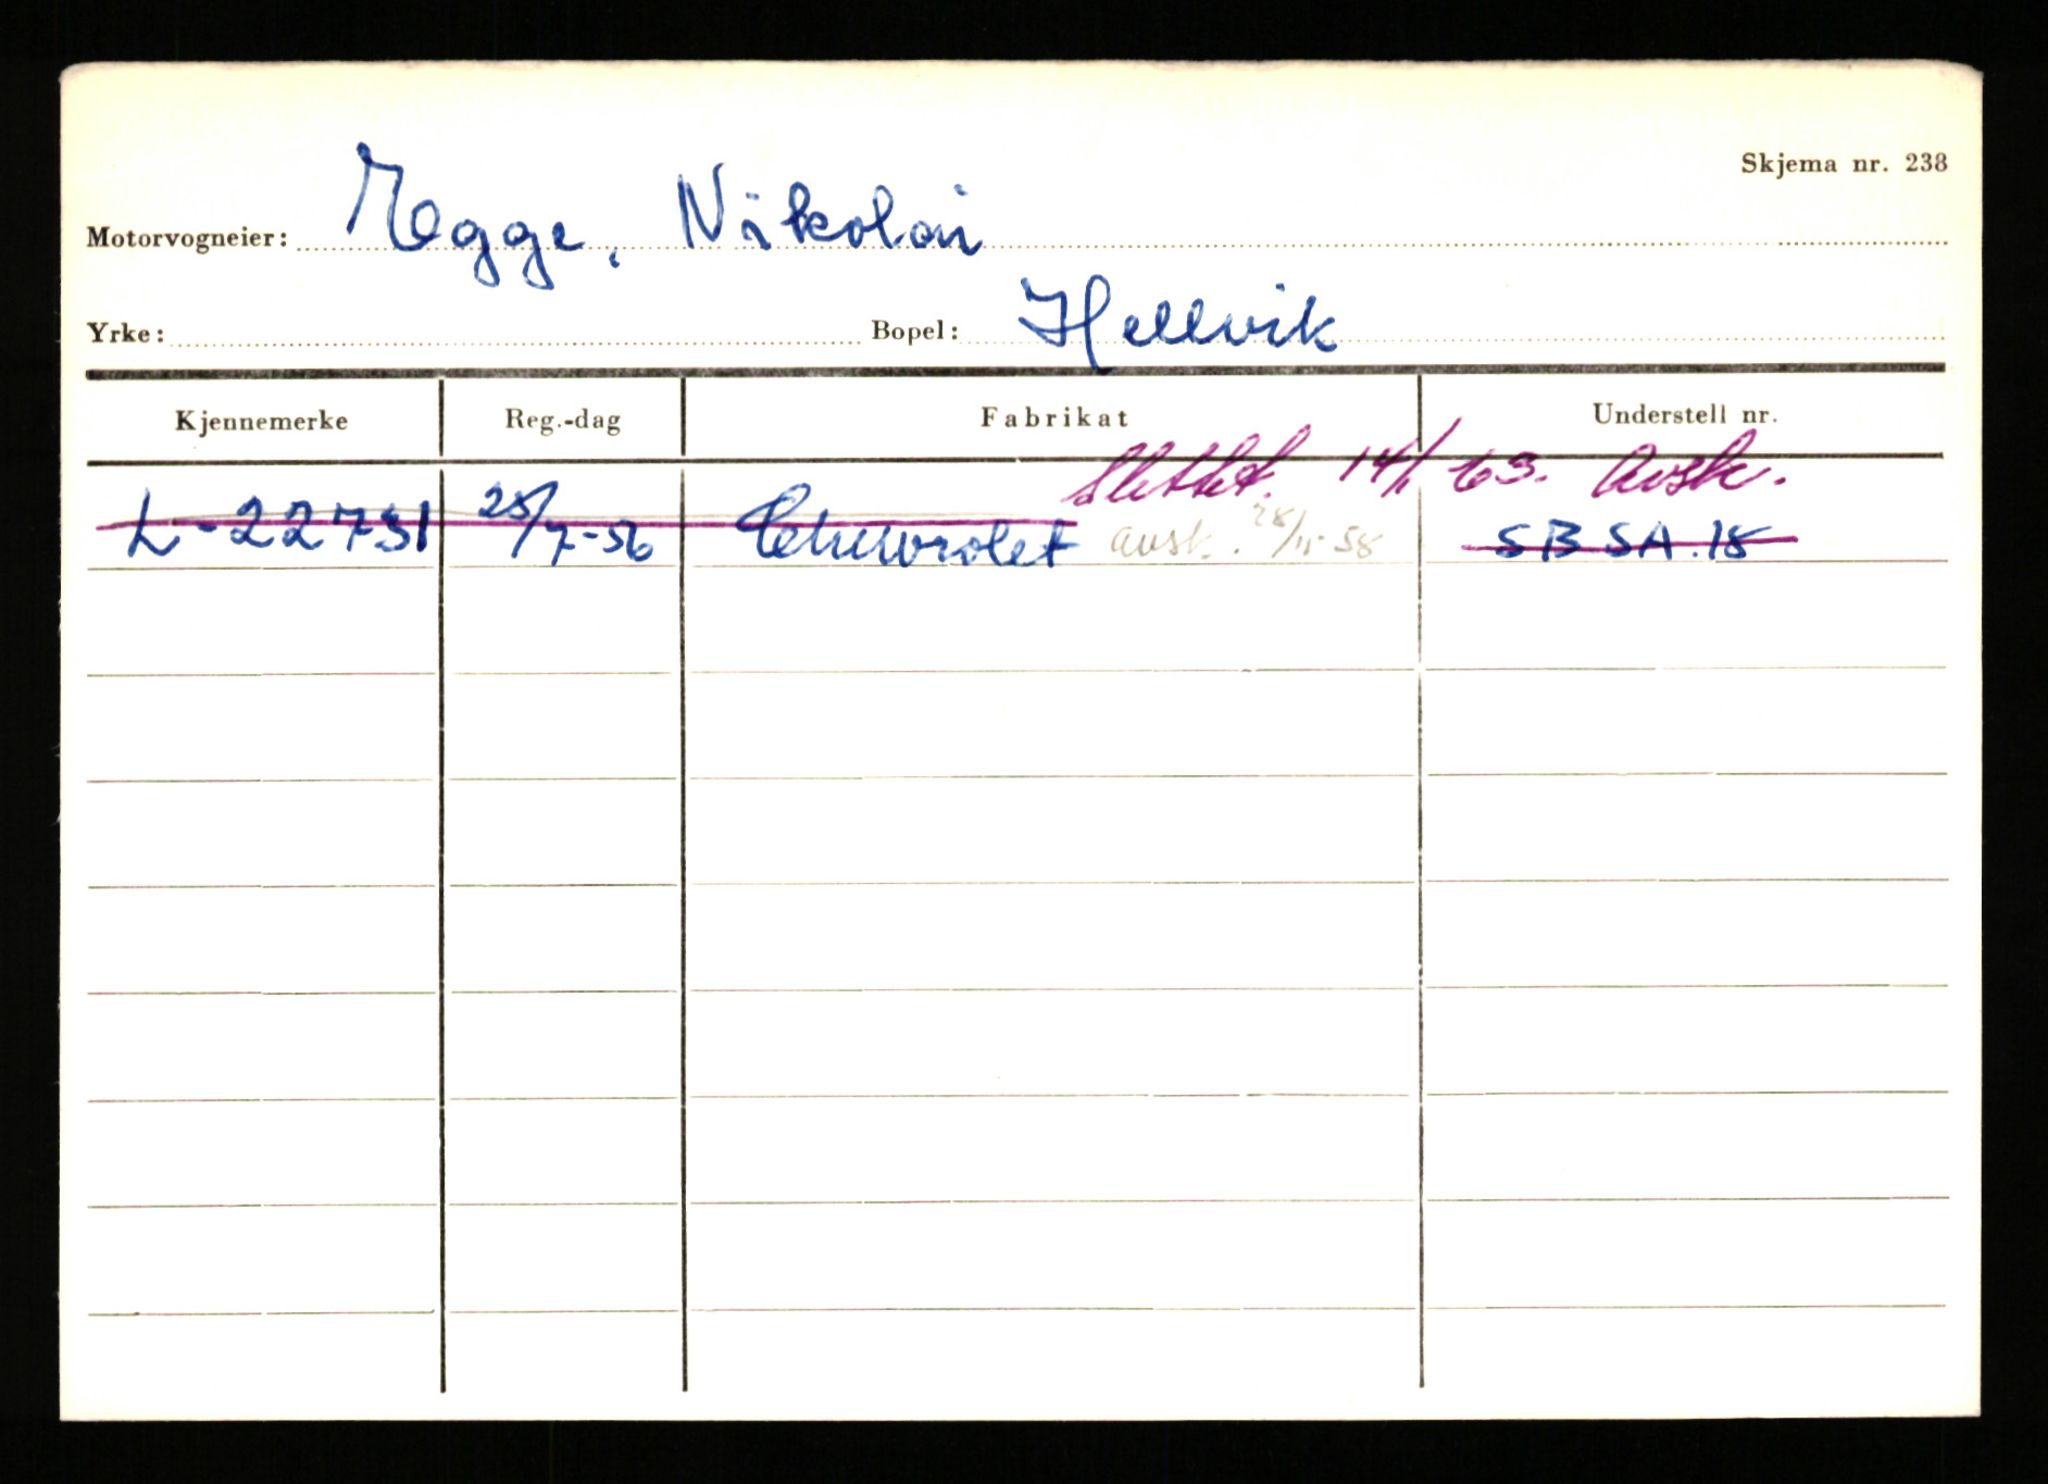 Skjema nr. 238
Motorvogneier: Egge, Nikolai
Yrke: Bopel: Hellvik
Kjennemerke Reg.-dag Fabrikat Understell nr.
Slettet. 14/1 63. Avsk.
L-22731 25/7-56 Chevrolet avsk. 28/11-58 SBSA.18